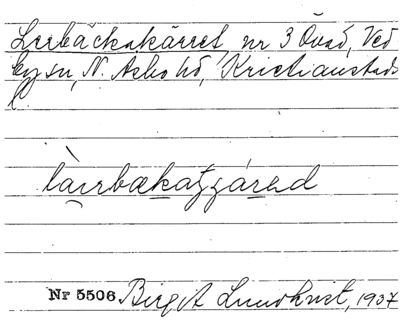 Lerbäckakärret, nr 3 Övad, Ved
by sn, N. Åsbo hd, Kristianstads
l
Nr 5506 Birgit Lundkvist, 1937